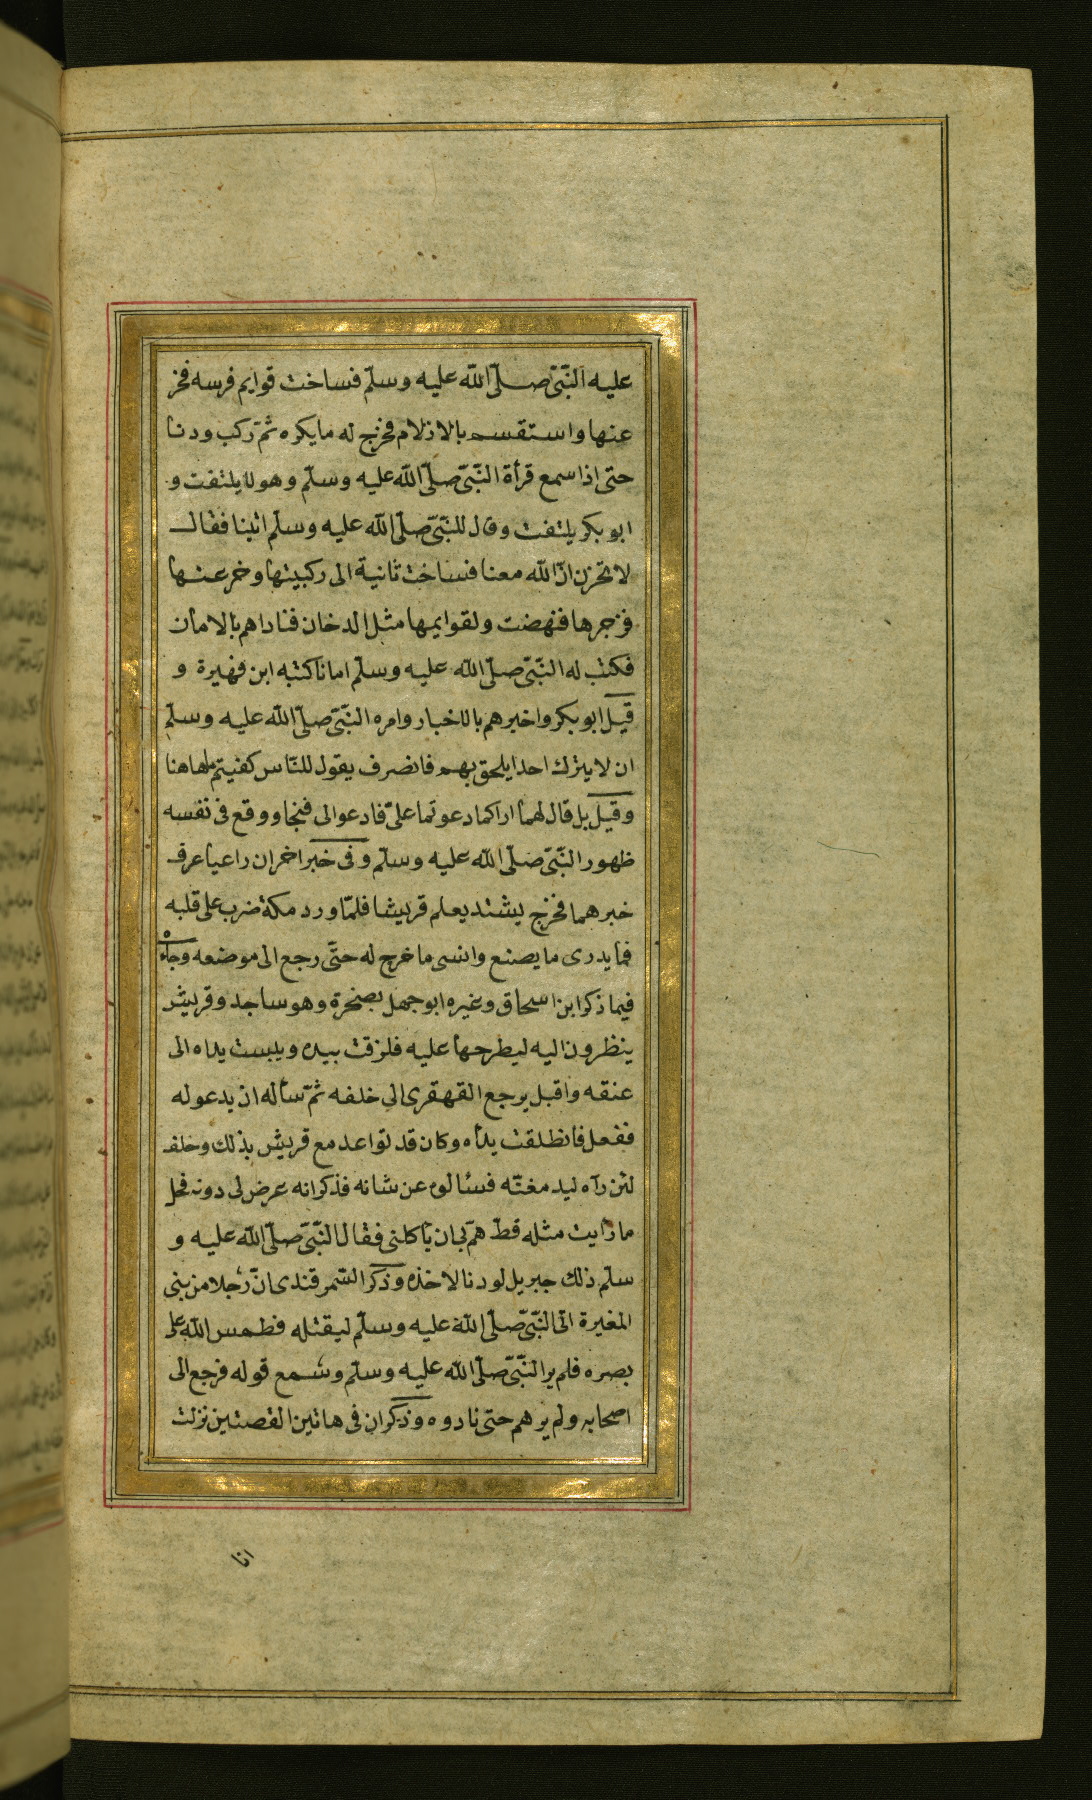 عليه النّبىّ صلّى الله عليه وسلّم فساخت قوايم فرسه فخر
عنها واستقسم بالازلام فخرج له مايكره ثمّ ركب ودنا
حتى اذا سمع قرأة النّبىّ صلّى الله عليه وسلّم وهو لا يلتفت و
ابو بكر يلتفت وقال للنّبىّ صلّى الله عليه وسلّم اتينا فقال
لا تحزن انّ الله معنا فساخت ثانية الى ركبيتها وخر عنها
فزجرها فنهضت ولقوايمها مثل الدخان فناداهم بالامان
فكتب له النّبىّ صلّى الله عليه وسلّم امانا كتبه ابن فهيرة و
قيل ابو بكر واخبرهم بالاخبار وامره النّبىّ صلّى الله عليه وسلّم
ان لا يترك احدا يلحق بهم فانصرف يقول للنّاس كفيتم ماهاهنا
وقيل بل قال لهما اراكما دعوتما علىّ فادعوا لى فنجا ووقع فى نفسه
ظهور النّبىّ صلّى الله عليه وسلّم وفى خبر اخر ان راعيا عرف
خبرهما فخرج يشتد يعلم قريشا فلمّا ورد مكة ضرب على قلبه
فما يدرى ما يصنع وانسى ما خرج له حتّى رجع الى موضعه وجاءه
فيما ذكر ابن اسحاق وغيره ابو جهل بصخرة وهو ساجد وقريش
ينظرون اليه ليطرحها عليه فلزقت بيده ويبست يداه الى
عنقه واقبل يرجع القهقرى الى خلفه ثمّ سأله ان يدعو له
ففعل فانطلقت يداه وكان قد تواعد مع قريش بذلك وحلف
لئن رآه ليدمغنّه فسئالوه عن شانه فذكر انه عرض لى دونه فحل
ما رايت مثله قطّ همّ بى ان يأكلنى فقال النّبىّ صلّى الله عليه و
سلّم ذلك جبريل لو دنا لاخذه وذكر السّمرقندى انّ رجلا من بنى
المغيرة اتى النّبىّ صلّى الله عليه وسلّم ليقتله فطمس الله على
بصره فلم ير النّبىّ صلّى الله عليه وسلّم وسمع قوله فرجع الى
اصحابه ولم يرهم حتى نادوه وذكر ان فى هاتين القصتين نزلت
انا